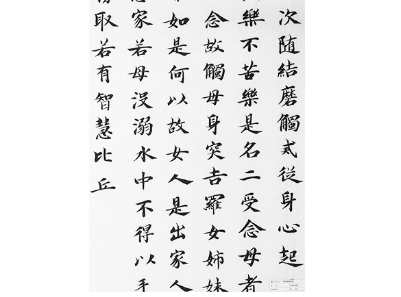 次隨結磨觸戒從身心起
樂不苦樂是名二受念母者
念故觸母身突吉羅女姊妹
如是何以故女人是出家人
家若母沒溺水中不得以手
取若有智慧比丘